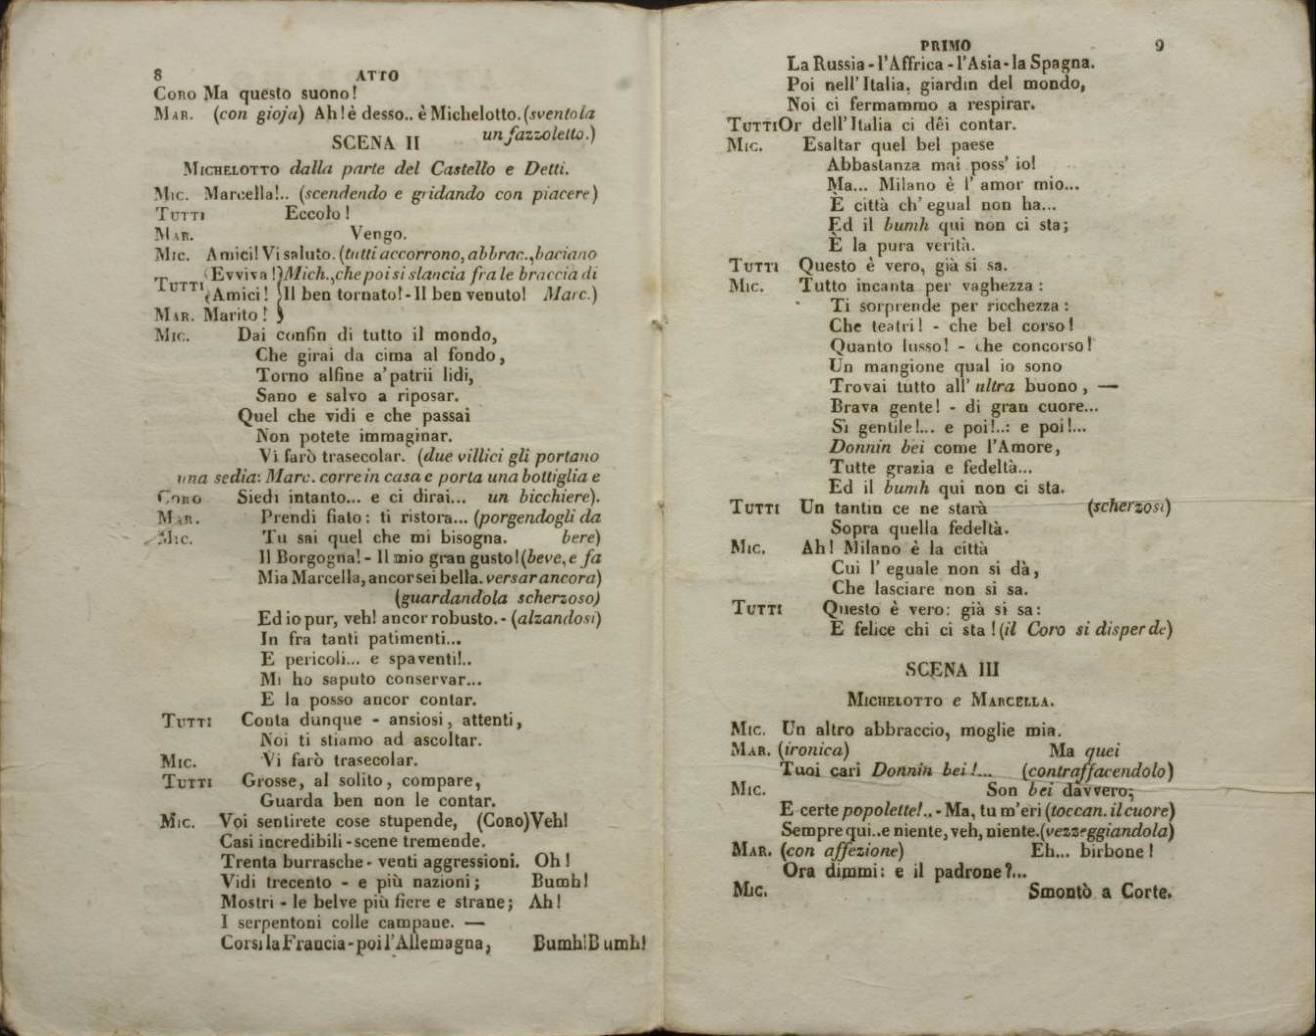 8 ATTO
CORO Ma questo suono!
MAR. (con gioja) Ah! è desso.. è Michelotto. (sventola
un fazzoletto.)
SCENA II
MICHELOTTO dalla parte del Castello e Detti.
MIC. Marcella!.. (scendendo e gridando con piacere)
TUTTI Eccolo!
MAR. Vengo.
MIC. Amici! Vi saluto. (tutti accorrono, abbrac., baciano
Evviva!) Mich., che poi si slancia fra le braccia di
TUTTI Amici! Il ben tornato! - Il ben venuto! Marc.)
MAR. Marito!
MIC. Dai confin di tutto il mondo,
Che girai da cima al fondo,
Torno alfine a' patrii lidi,
Sano e salvo a riposar.
Quel che vidi e che passai
Non potete immaginar.
Vi farò trasecolar. (due villici gli portano
una sedia: Marc. corre in casa e porta una bottiglia e
CORO Siedi intanto... e ci dirai... un bicchiere).
MAR. Prendi fiato: ti ristora... (porgendogli da
MIC. Tu sai quel che mi bisogna. bere)
Il Borgogna! - Il mio gran gusto! (beve, e fa
Mia Marcella, ancor sei bella. versar ancora)
(guardandola scherzoso)
Ed io pur, veh! ancor robusto. - (alzandosi)
In fra tanti patimenti...
E pericoli... e spaventi!..
Mi ho saputo conservar...
E la posso ancor contar.
TUTTI Conta dunque - ansiosi, attenti,
Noi ti stiamo ad ascoltar.
MIC. Vi farò trasecolar.
TUTTI Grosse, al solito, compare,
Guarda ben non le contar.
MIC. Voi sentirete cose stupende, (CORO) Veh!
Casi incredibili - scene tremende.
Trenta burrasche - venti aggressioni. Oh!
Vidi trecento - e più nazioni; Bumh!
Mostri - le belve più fiere e strane; Ah!
I serpentoni colle campane. —
Corsi la Francia - poi l'Allemagna, Bumh! Bumh!
PRIMO 9
La Russia - l'Affrica - l'Asia - la Spagna.
Poi nell'Italia, giardin del mondo,
Noi ci fermammo a respirar.
TUTTI Or dell'Italia ci dêi contar.
MIC. Esaltar quel bel paese
Abbastanza mai poss' io!
Ma... Milano è l' amor mio...
È città ch' egual non ha...
Ed il bumh qui non ci sta;
È la pura verità.
TUTTI Questo è vero, già si sa.
MIC. Tutto incanta per vaghezza:
Ti sorprende per ricchezza:
Che teatri! - che bel corso!
Quanto lusso! - che concorso!
Un mangione qual io sono
Trovai tutto all' ultra buono, —
Brava gente! - di gran cuore...
Sì gentile!... e poi!..: e poi!...
Donnin bei come l'Amore,
Tutte grazia e fedeltà...
Ed il bumh qui non ci sta.
TUTTI Un tantin ce ne starà (scherzosi)
Sopra quella fedeltà.
MIC. Ah! Milano è la città
Cui l' eguale non si dà,
Che lasciare non si sa.
TUTTI Questo è vero: già si sa:
E felice chi ci sta! (il Coro si disperde)
SCENA III
MICHELOTTO e MARCELLA.
MIC. Un altro abbraccio, moglie mia.
MAR. (ironica) Ma quei
Tuoi cari Donnin bei!... (contraffacendolo)
MIC. Son bei davvero;
E certe popolette!.. - Ma, tu m'eri (toccan. il cuore)
Sempre qui.. e niente, veh, niente. (vezzeggiandola)
MAR. (con affezione) Eh... birbone!
Ora dimmi: e il padrone?...
MIC. Smontò a Corte.